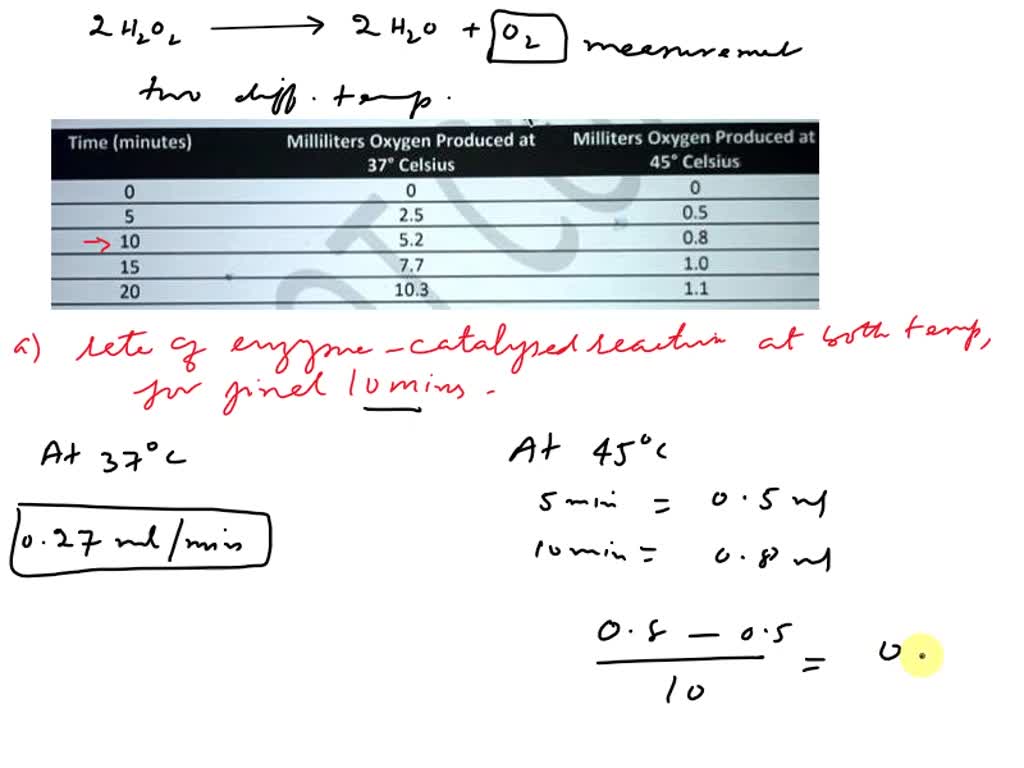 2 H₂O₂ ⟶ 2 H₂O + O₂ measuremet
two diff. temp.
Time (minutes) Milliliters Oxygen Produced at 37° Celsius Milliters Oxygen Produced at 45° Celsius
0 0 0
5 2.5 0.5
→ 10 5.2 0.8
15 7.7 1.0
20 10.3 1.1
a) rate of enzyme-catalysed reaction at both temp,
for final 10 mins.
At 37°C At 45°C
5 min = 0.5 ml
0.27 ml/min
10 min = 0.8 ml
0.8 - 0.5
/ 10 = 0.